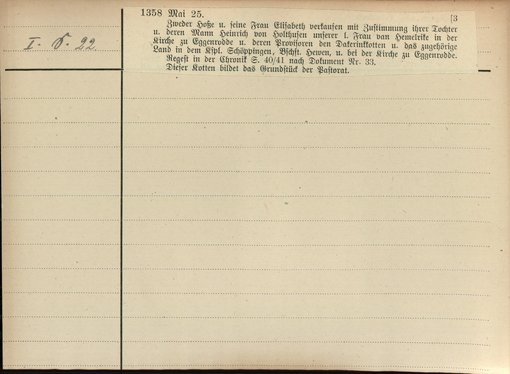 1358 Mai 25. [3
Zweder Hoße u. seine Frau Elisabeth verkaufen mit Zustimmung ihrer Tochter
u. deren Mann Heinrich von Holthusen unserer l. Frau van Hemelrike in der
Kirche zu Eggenrodde u. deren Provisoren den Dakerinkkotten u. das zugehörige
Land in dem Kspl. Schöppingen, Bschft. Hewen, u. bei der Kirche zu Eggenrodde.
Regest in der Chronik S. 40/41 nach Dokument Nr. 33.
Dieser Kotten bildet das Grundstück der Pastorat.
I. S. 22